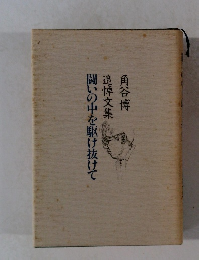 角谷博
追悼文集
闘いの中を駆け抜けて